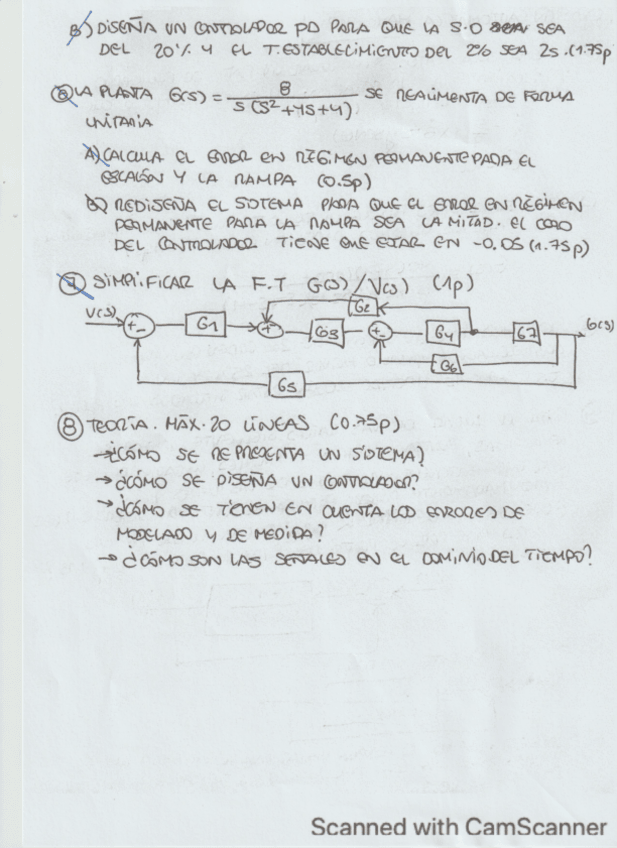 B) DISEÑA UN CONTROLADOR PD PARA QUE LA S.O SEA
DEL 20% Y EL T.ESTABLECIMIENTO DEL 2% SEA 2s. (1.75p
6 LA PLANTA G(s) = 8 / S(S²+4S+4) SE REALIMENTA DE FORMA
UNITARIA
A) CALCULA EL ERROR EN RÉGIMEN PERMANENTE PARA EL
ESCALÓN Y LA RAMPA (0.5p)
B) REDISEÑA EL SISTEMA PARA QUE EL ERROR EN RÉGIMEN
PERMANENTE PARA LA RAMPA SEA LA MITAD. EL CERO
DEL CONTROLADOR TIENE QUE ESTAR EN -0.05 (1.75p)
7 SIMPLIFICAR LA F.T G(s)/V(s) (1p)
G2
V(s) + - G1 + + G3 + - G4 G7 G(s)
G6
G5
8 TEORÍA. MÁX. 20 LÍNEAS (0.75p)
→ ¿CÓMO SE REPRESENTA UN SISTEMA?
→ ¿CÓMO SE DISEÑA UN CONTROLADOR?
→ ¿CÓMO SE TIENEN EN CUENTA LOS ERRORES DE
MODELADO Y DE MEDIDA?
→ ¿CÓMO SON LAS SEÑALES EN EL DOMINIO DEL TIEMPO?
Scanned with CamScanner